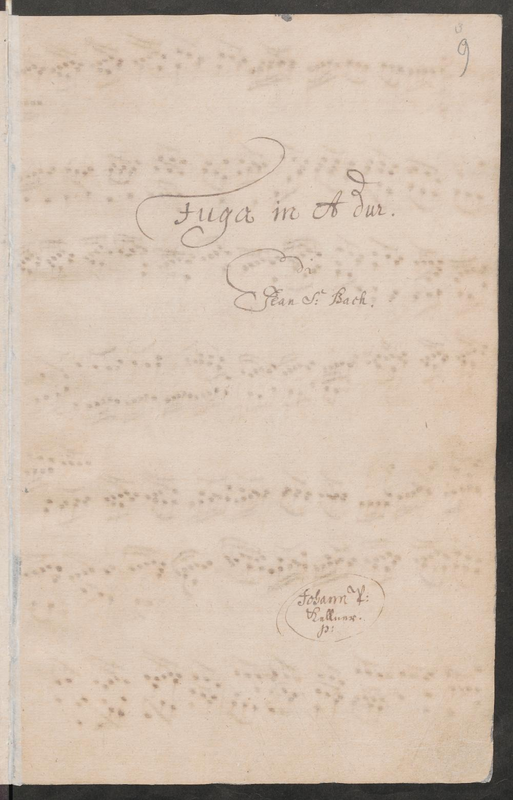 9
Fuga in A dur.
di
Jean S: Bach.
Johann P:
Kellner.
p: